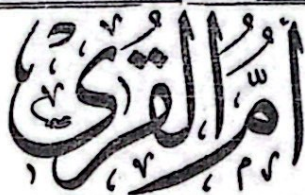 أمّ القرى